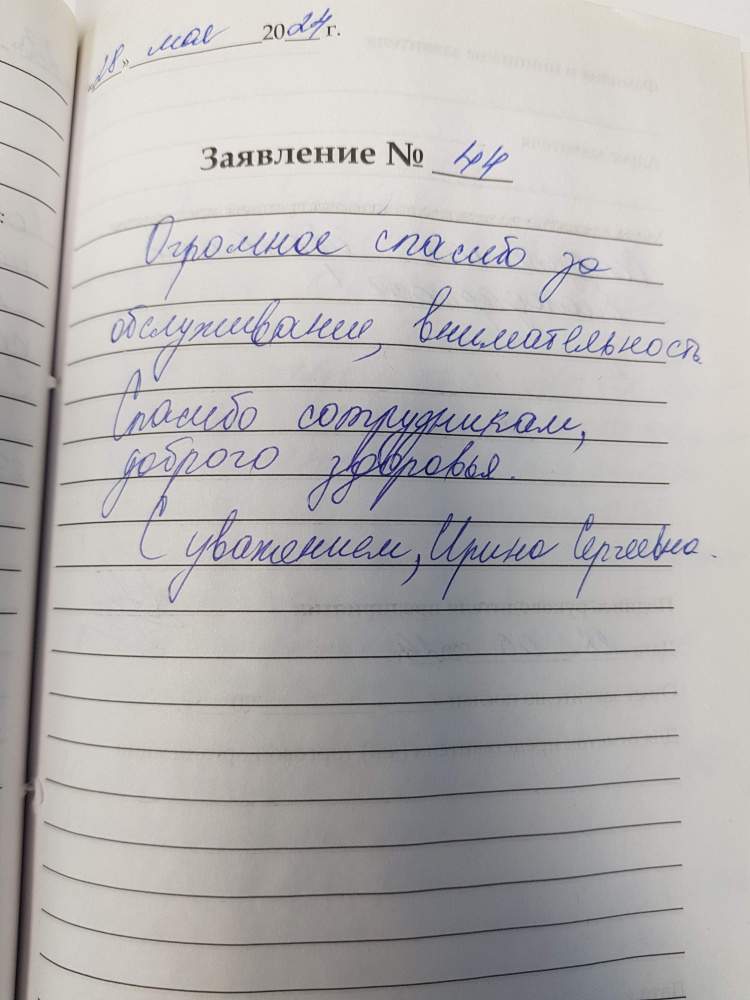 «28» мая 2024 г.
Заявление № 44
Огромное спасибо за
обслуживание, внимательность
Спасибо сотрудникам,
доброго здоровья.
С уважением, Ирина Сергеевна.